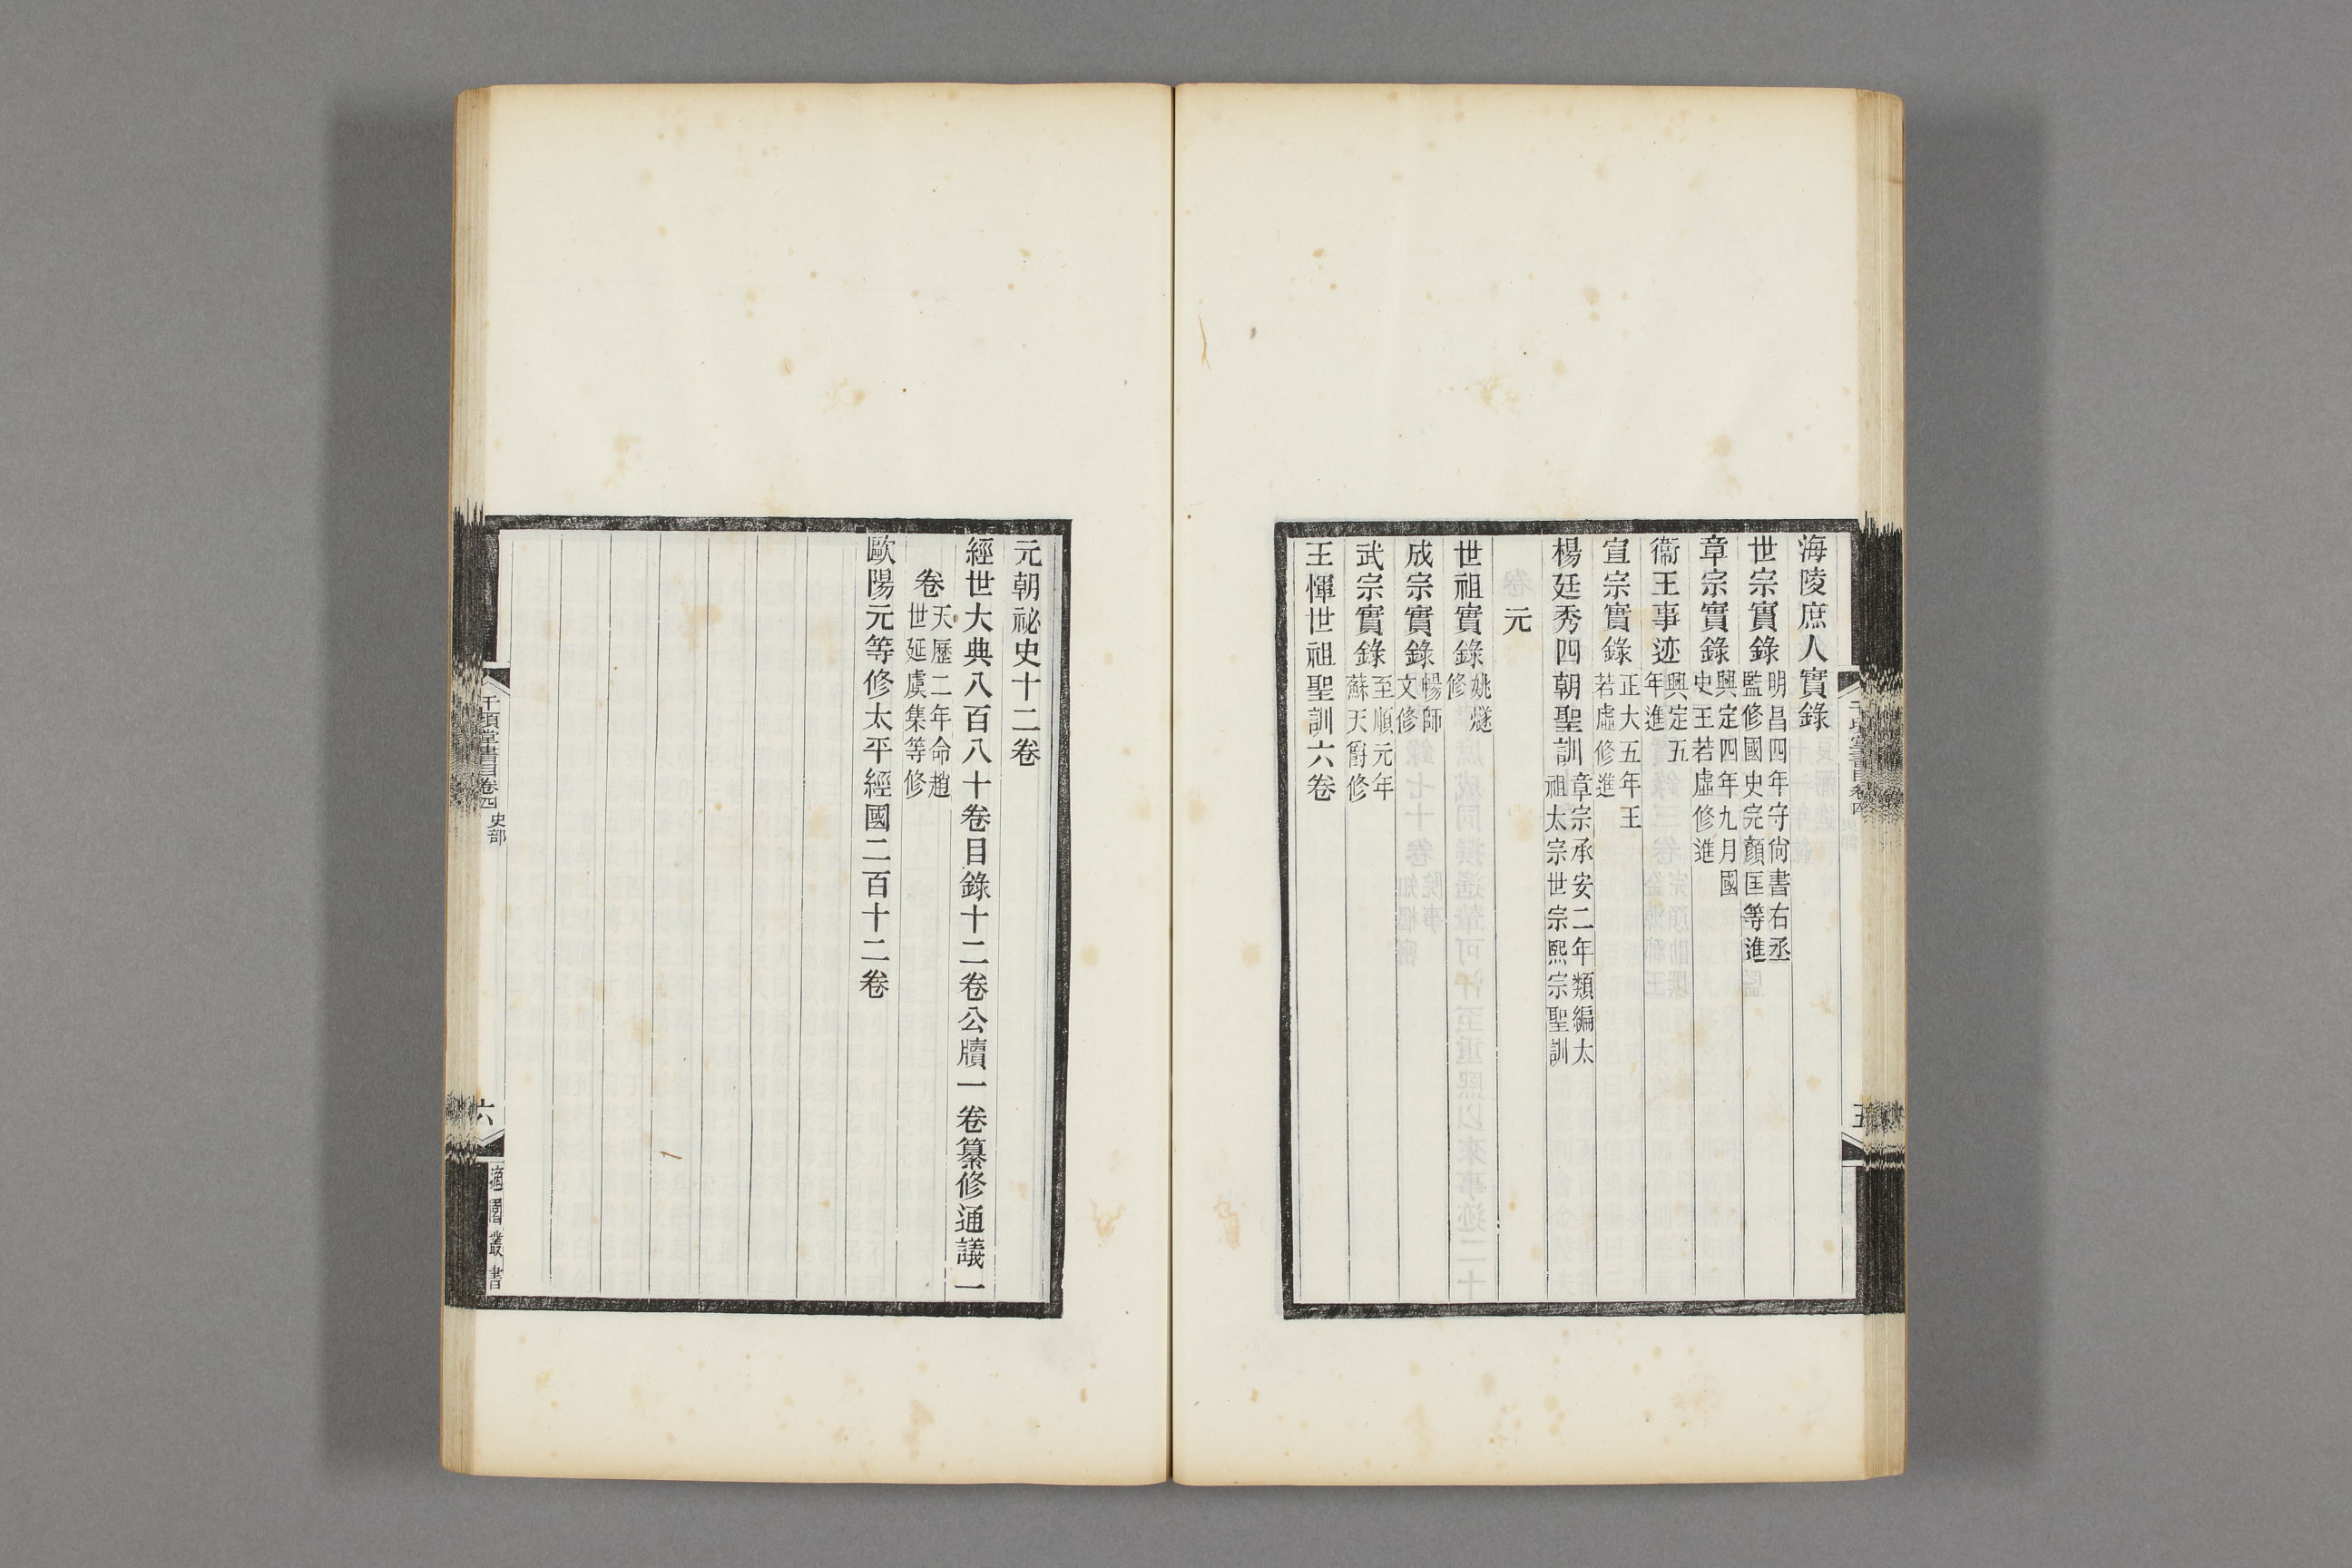 海陵庶人實錄
世宗實錄明昌四年守尙書右丞監修國史完顏匡等進
章宗實錄興定四年九月國史王若虛修進
衞王事迹興定五年進
宣宗實錄正大五年王若虛修進
楊廷秀四朝聖訓章宗承安二年類編太祖太宗世宗熙宗聖訓
元
世祖實錄姚燧修
成宗實錄暢師文修
武宗實錄至順元年蘇天爵修
王惲世祖聖訓六卷
五
元朝祕史十二卷
經世大典八百八十卷目錄十二卷公牘一卷纂修通議一
卷天歷二年命趙世延虞集等修
歐陽元等修太平經國二百十二卷
千頃堂書目卷四 史部
六
適園叢書